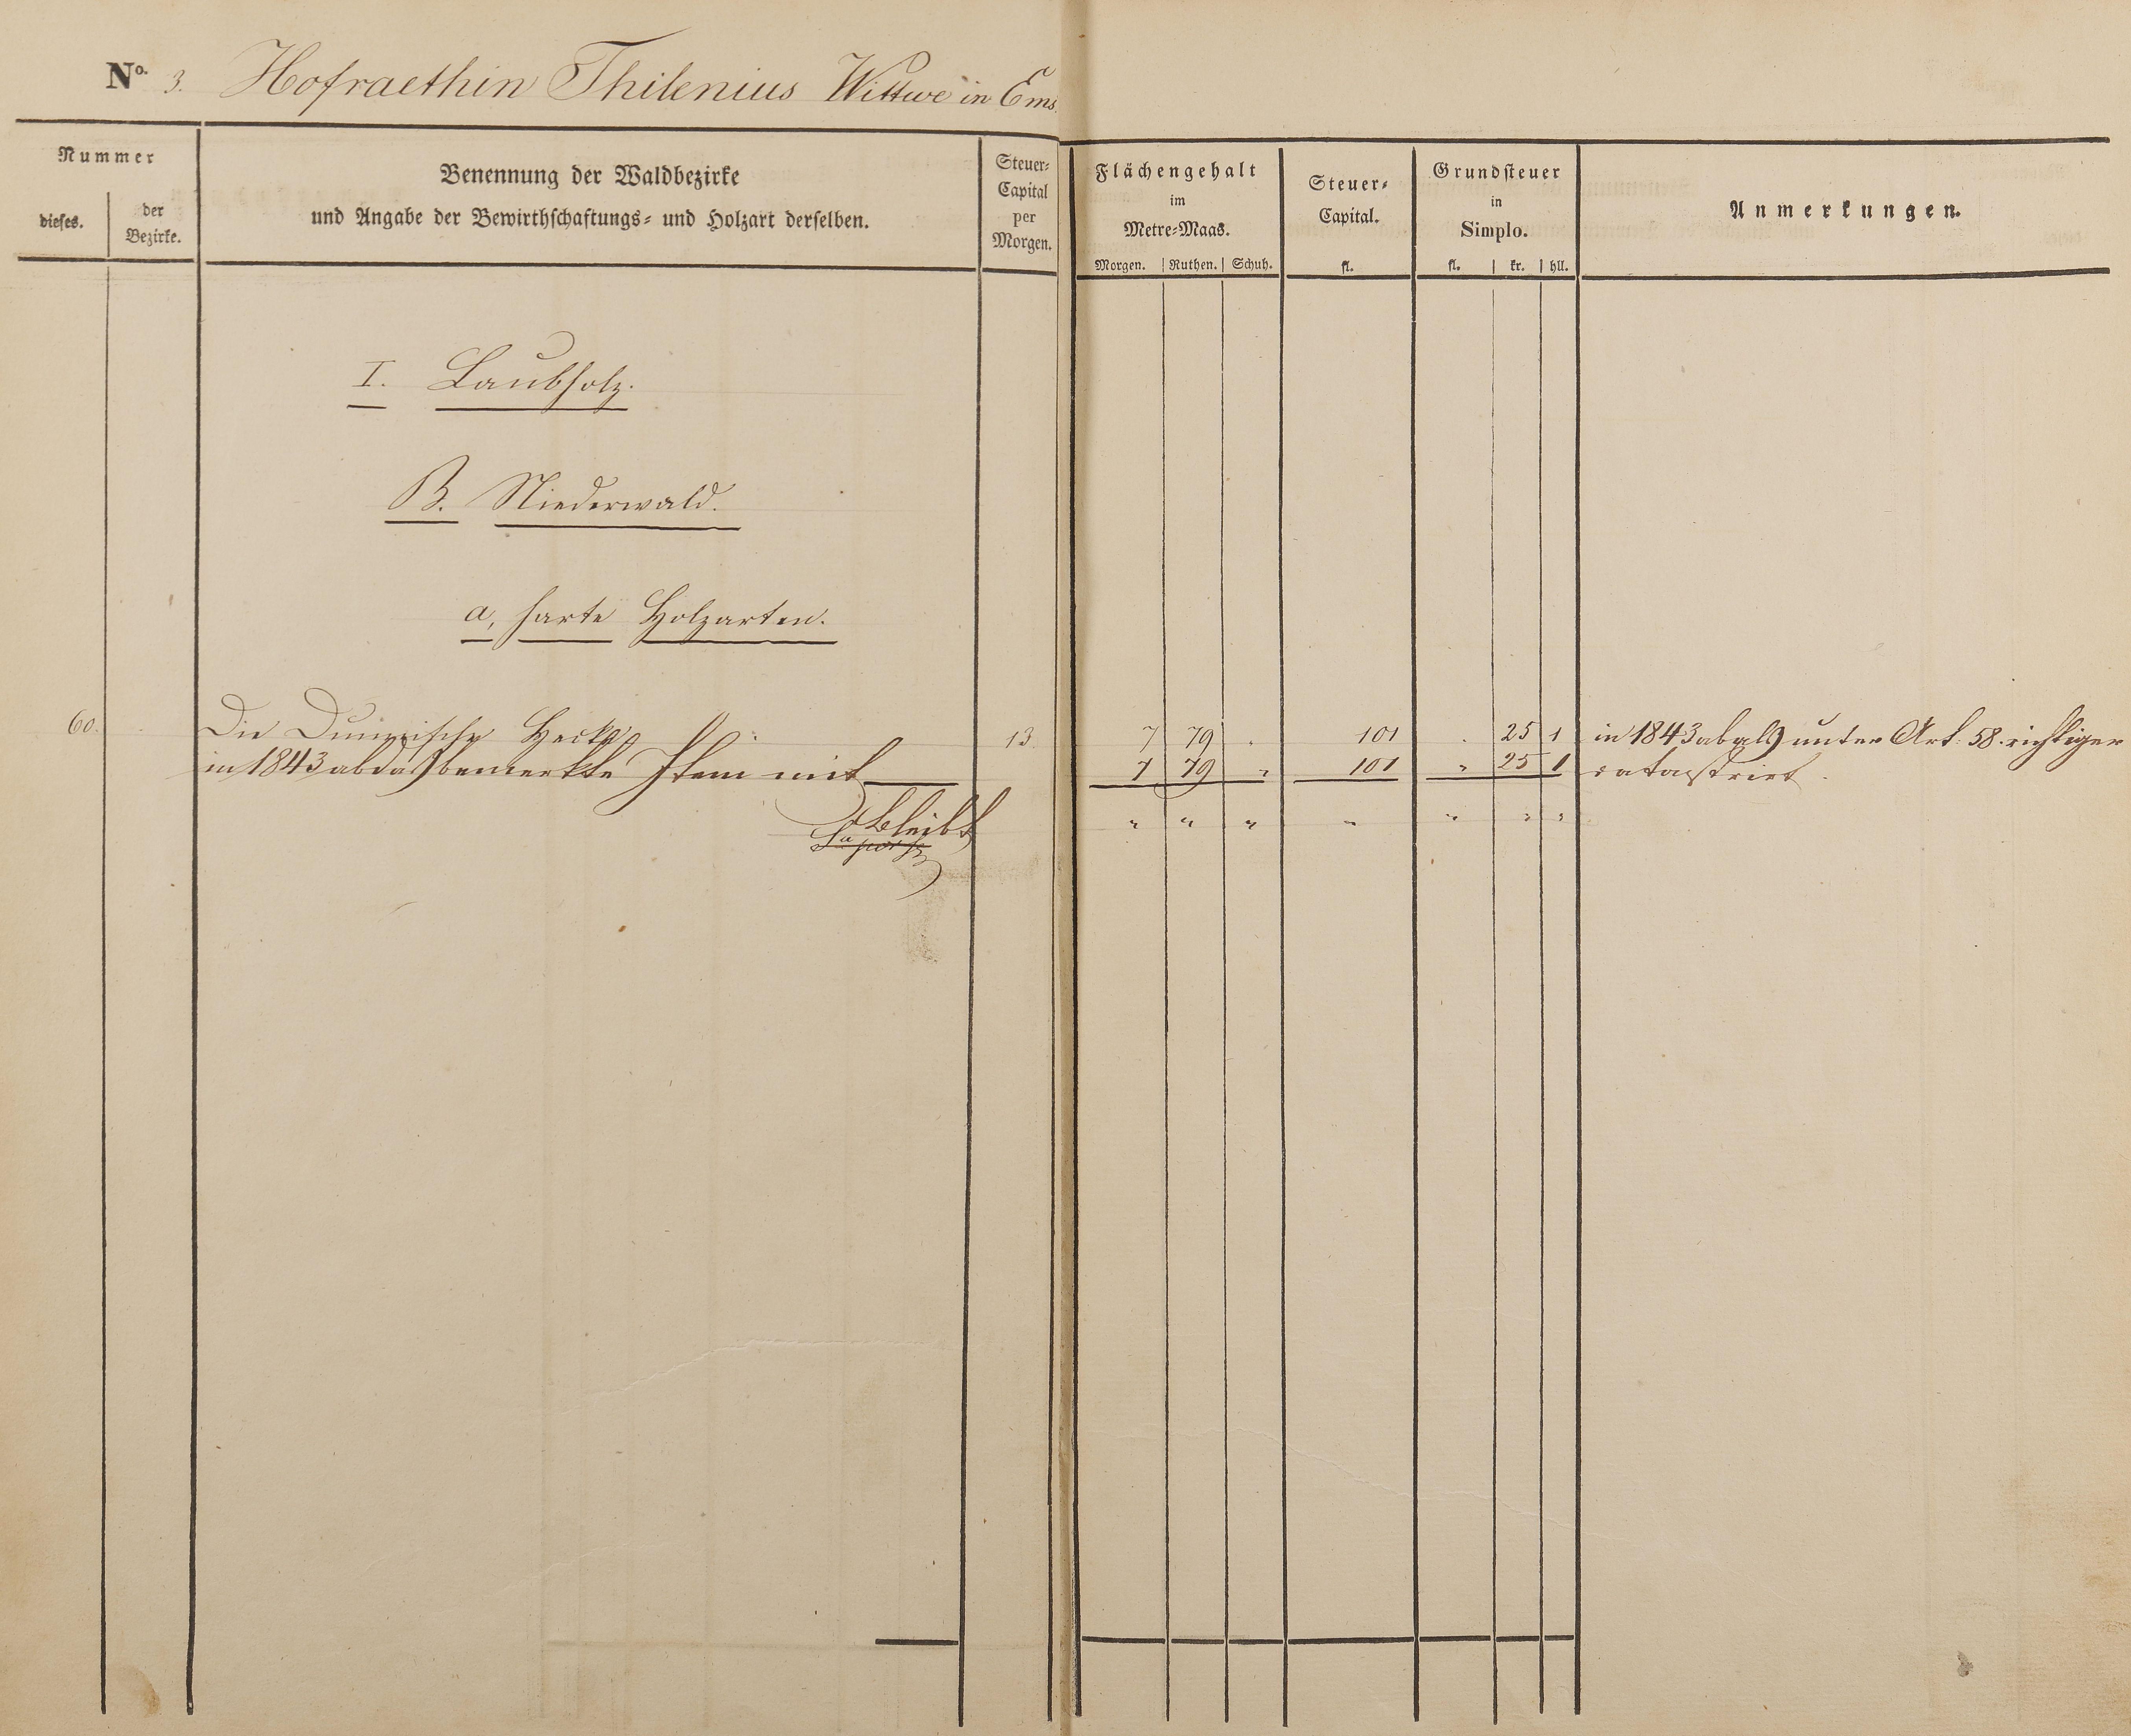 No. 3. Hofraethin Thilenius Wittwe in Ems.
Nummer
dieses.
der
Bezirke.
Benennung der Waldbezirke
und Angabe der Bewirthschaftungs= und Holzart derselben.
Steuer=
Capital
per
Morgen.
Flächengehalt
im
Metre=Maas.
Morgen. Ruthen. Schuh.
Steuer=
Capital.
fl.
Grundsteuer
in
Simplo.
fl. kr. hll.
Anmerkungen.
I. Laubholz.
B. Niederwald.
a, harte Holzarten.
60. Die Hecke 13. 7 79 . 101 . 25 1 in 1843 ab als unter Art. 58. richtiger
in 1843 ab das bemerkte Item mit 7 79 " 101 " 25 1 catastrirt.
Bleibt " " " " " " "